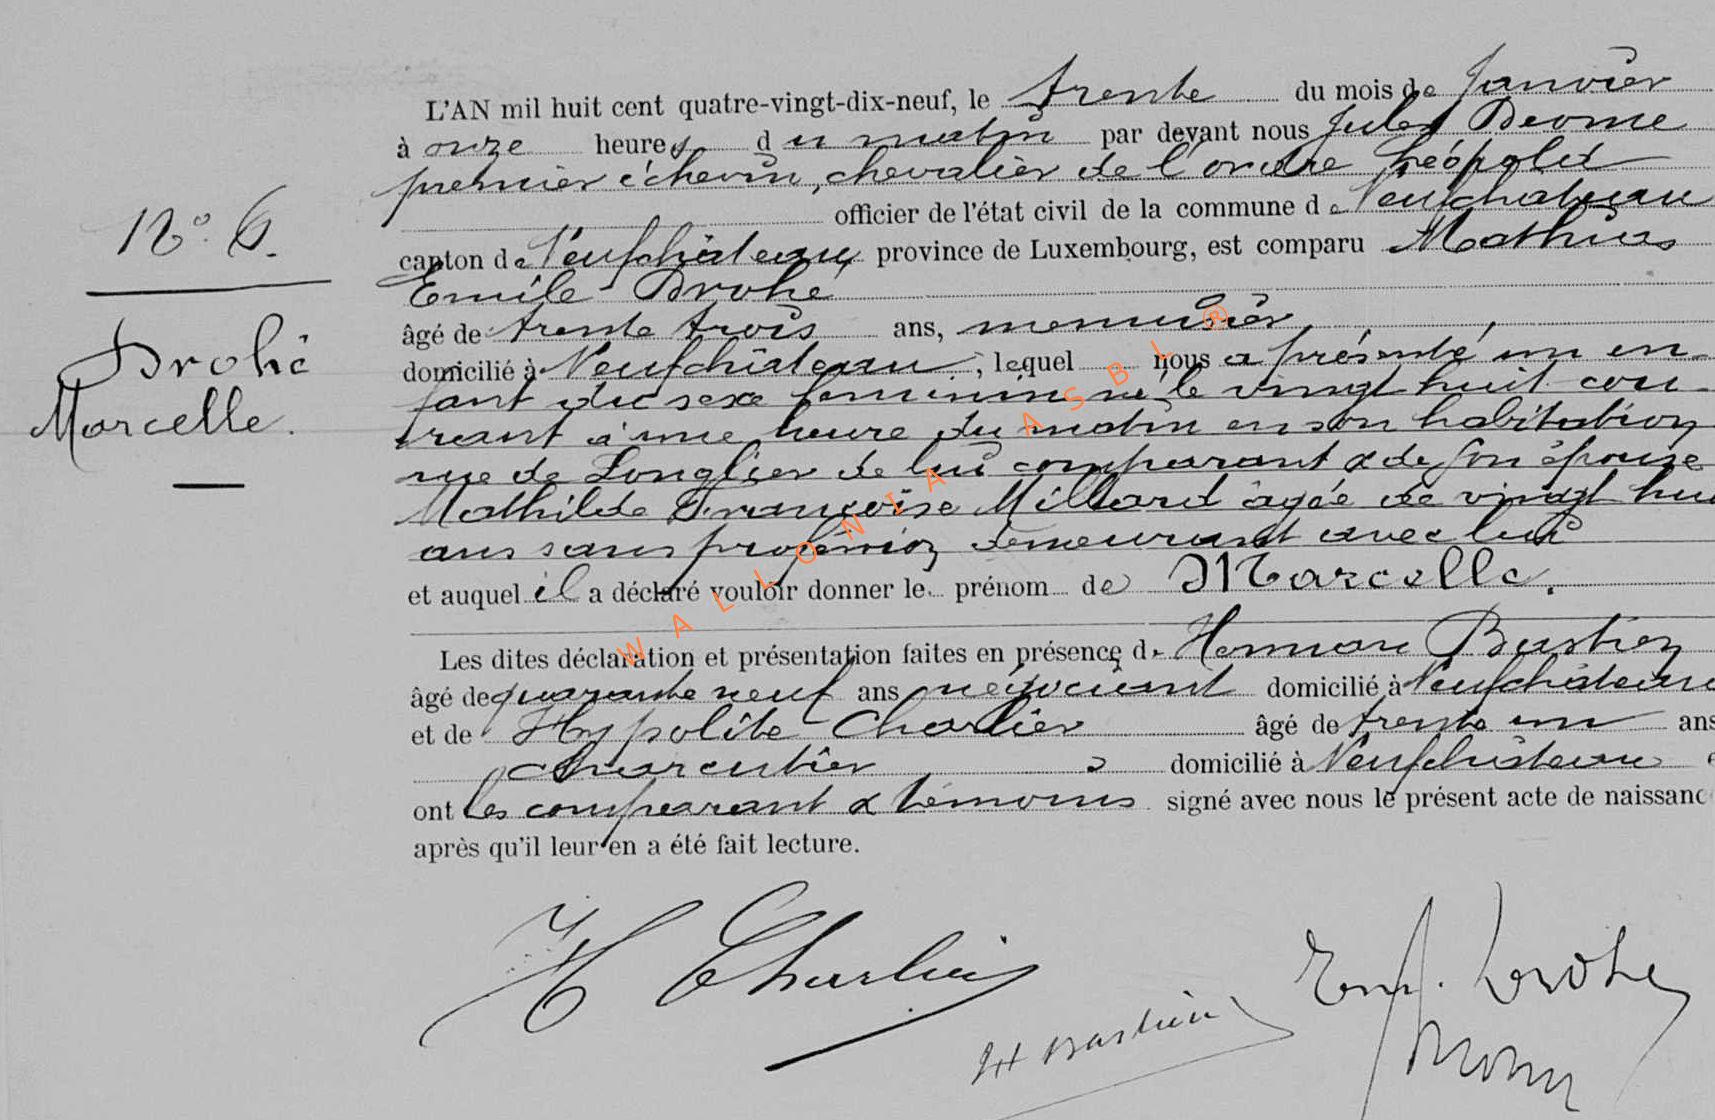 L'AN mil huit cent quatre-vingt-dix-neuf, le trente du mois de Janvier
à onze heures du matin par devant nous Jules Deome
premier échevin, chevalier de l'ordre Léopold
officier de l'état civil de la commune de Neufchâteau
N° 6.
canton de Neufchâteau, province de Luxembourg, est comparu Mathias
Emile Drohé
âgé de trente trois ans, menuisier
Drohé
domicilié à Neufchâteau, lequel nous a présenté un en-
fant du sexe féminin né le vingt huit cou-
Marcelle.
rant à une heure du matin en son habitation
rue de Longlier de lui comparant & de son épouse
Mathilde Françoise Millard âgée de vingt hui
ans sans profession demeurant avec lui
et auquel il a déclaré vouloir donner le prénom de Marcelle.
Les dites déclaration et présentation faites en présence de Herman Bastien
âgé de quarante neuf ans négociant domicilié à Neufchâteau
et de Hypolite Charlier âgé de trente un ans
charcutier domicilié à Neufchâteau e
ont les comparant & témoins signé avec nous le présent acte de naissanc
après qu'il leur en a été fait lecture.
H Charlier
Em. Drohé
H Bastien
WALLONIA ASBL ®